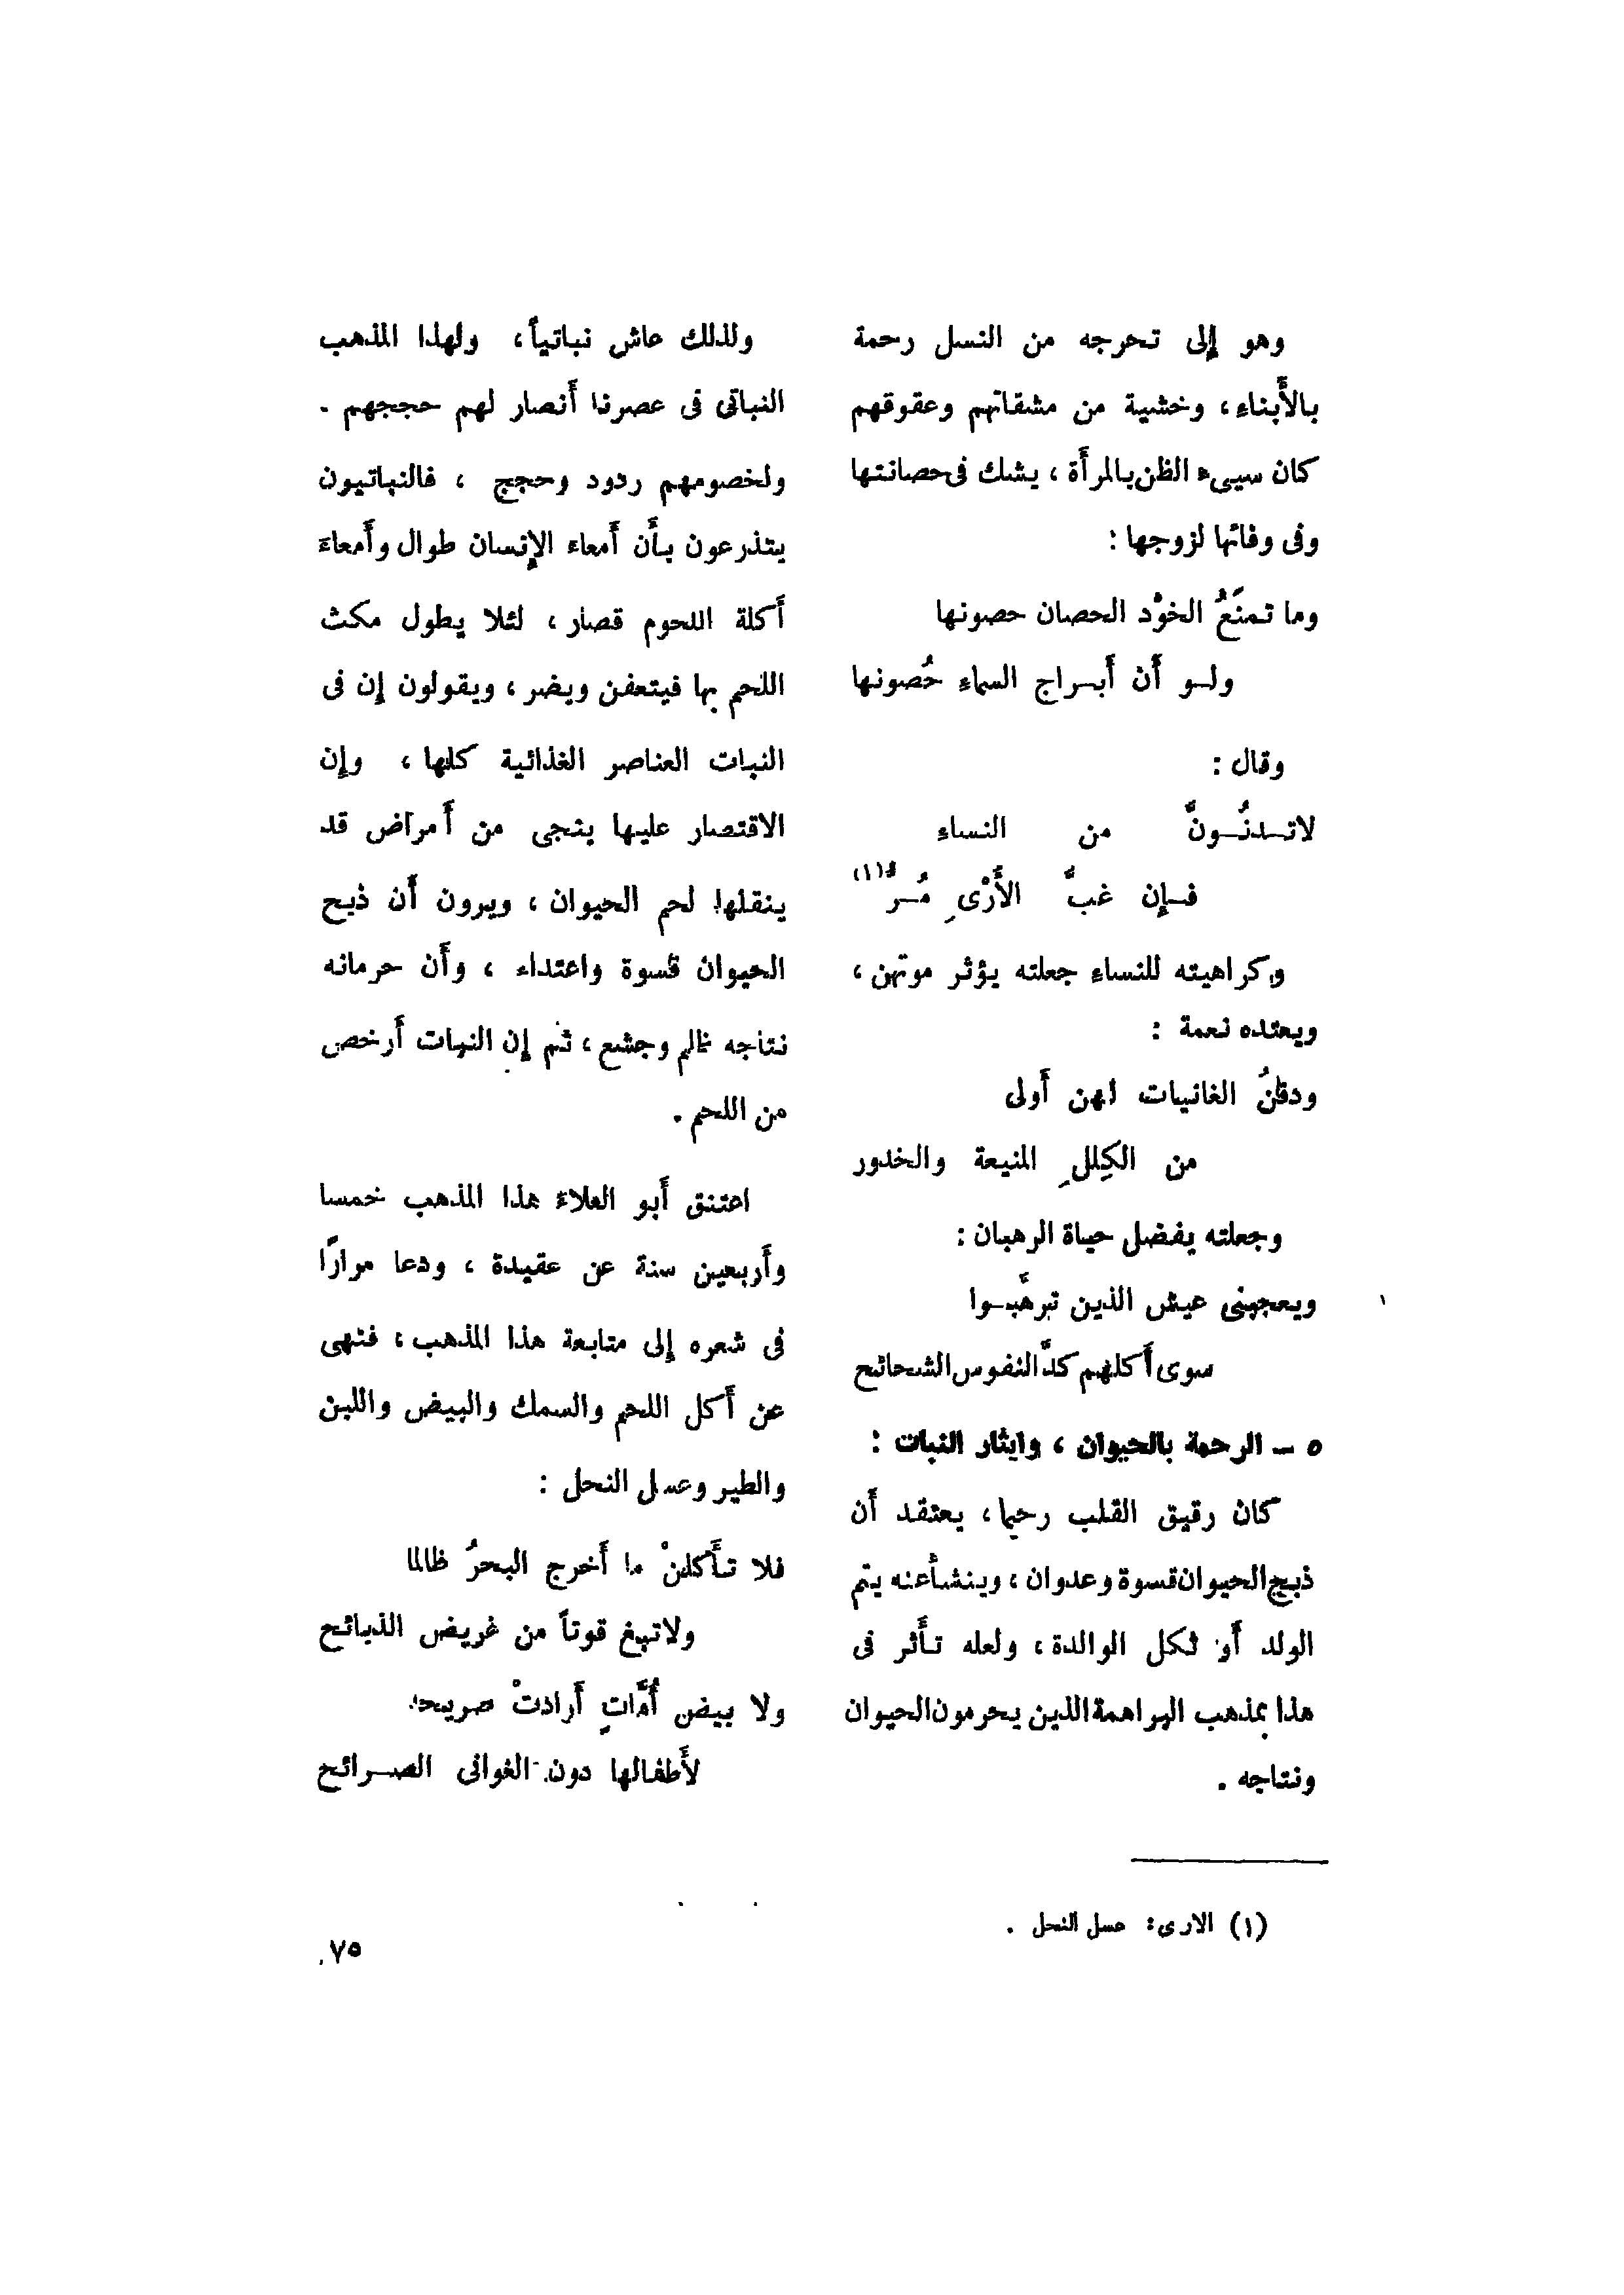 وهو إلى تحرجه من النسل رحمة
بالأبناء، وخشية من مشقاتهم وعقوقهم
كان سيىء الظن بالمرأة ، يشك فى حصانتها
وفى وفائها لزوجها :
وما تمنَعُ الخوْد الحصان حصونها
ولـو أن أبـراج السماءِ حُصونها
وقال :
لاتـدنُـونَّ من النساءِ
فـإن غبَّ الأَرْىِ مُـرّ(١)
وكراهيته للنساءِ جعلته يؤثر موتهن ،
ويعتده نعمة :
ودفنُ الغانيات لهن أولى
من الكِلل المنيعة والخدور
وجعلته يفضل حياة الرهبان :
ويعجبنى عيش الذين ترهَّبـوا
سوى أكلهم كدَّ النفوس الشحائح
٥ - الرحمة بالحيوان ، وايثار النبات :
كان رقيق القلب رحيما، يعتقد أن
ذبح الحيوان قسوة وعدوان ، وينشأ عنه يتم
الولد أو ثكل الوالدة ، ولعله تأثر فى
هذا بمذهب البراهمة الذين يحرمون الحيوان
ونتاجه .
(١) الارى: عسل النحل .
ولذلك عاش نباتياً ، ولهذا المذهب
النباتى فى عصرنا أنصار لهم حججهم .
ولخصومهم ردود وحجج ، فالنباتيون
يتذرعون بأن أمعاء الإنسان طوال وأمعاءَ
أكلة اللحوم قصار ، لئلا يطول مكث
اللحم بها فيتعفن ويضر ، ويقولون إن فى
النبات العناصر الغذائية كلها ، وإن
الاقتصار عليها ينجى من أمراض قد
ينقلها لحم الحيوان ، ويرون أن ذبح
الحيوان قسوة واعتداء ، وأن حرمانه
نتاجه ظلم وجشع ، ثم إن النبات أرخص
من اللحم .
اعتنق أبو العلاءَ هذا المذهب خمسا
وأربعين سنة عن عقيدة ، ودعا مرارًا
فى شعره إلى متابعة هذا المذهب ، فنهى
عن أكل اللحم والسمك والبيض واللبن
والطير وعسل النحل :
فلا تأكلنْ ما أخرج البحرُ ظالما
ولاتبغ قوتاً من غريض الذبائح
ولا بيض أُمَّاتٍ أرادتْ صريحه
لأطفالها دون الغوانى الصـرائح
٧٥